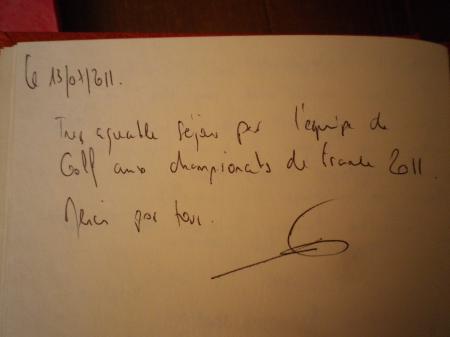 Le 13/07/2011.
Très agréable séjour par l'équipe de
Golf aux championnats de France 2011.
Merci pour tout.